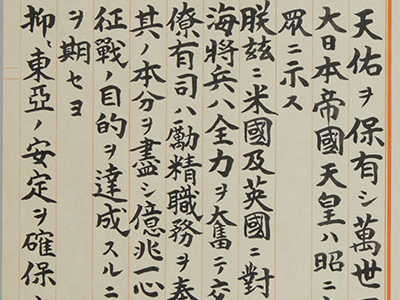 天佑ヲ保有シ萬世一
大日本帝國天皇ハ昭ニ
眾ニ示ス
朕茲ニ米國及英國ニ對
海將兵ハ全力ヲ奮テ交
僚有司ハ勵精職務ヲ奉
其ノ本分ヲ盡シ億兆一心
征戰ノ目的ヲ達成スルニ
ヲ期セヨ
抑〻東亞ノ安定ヲ確保